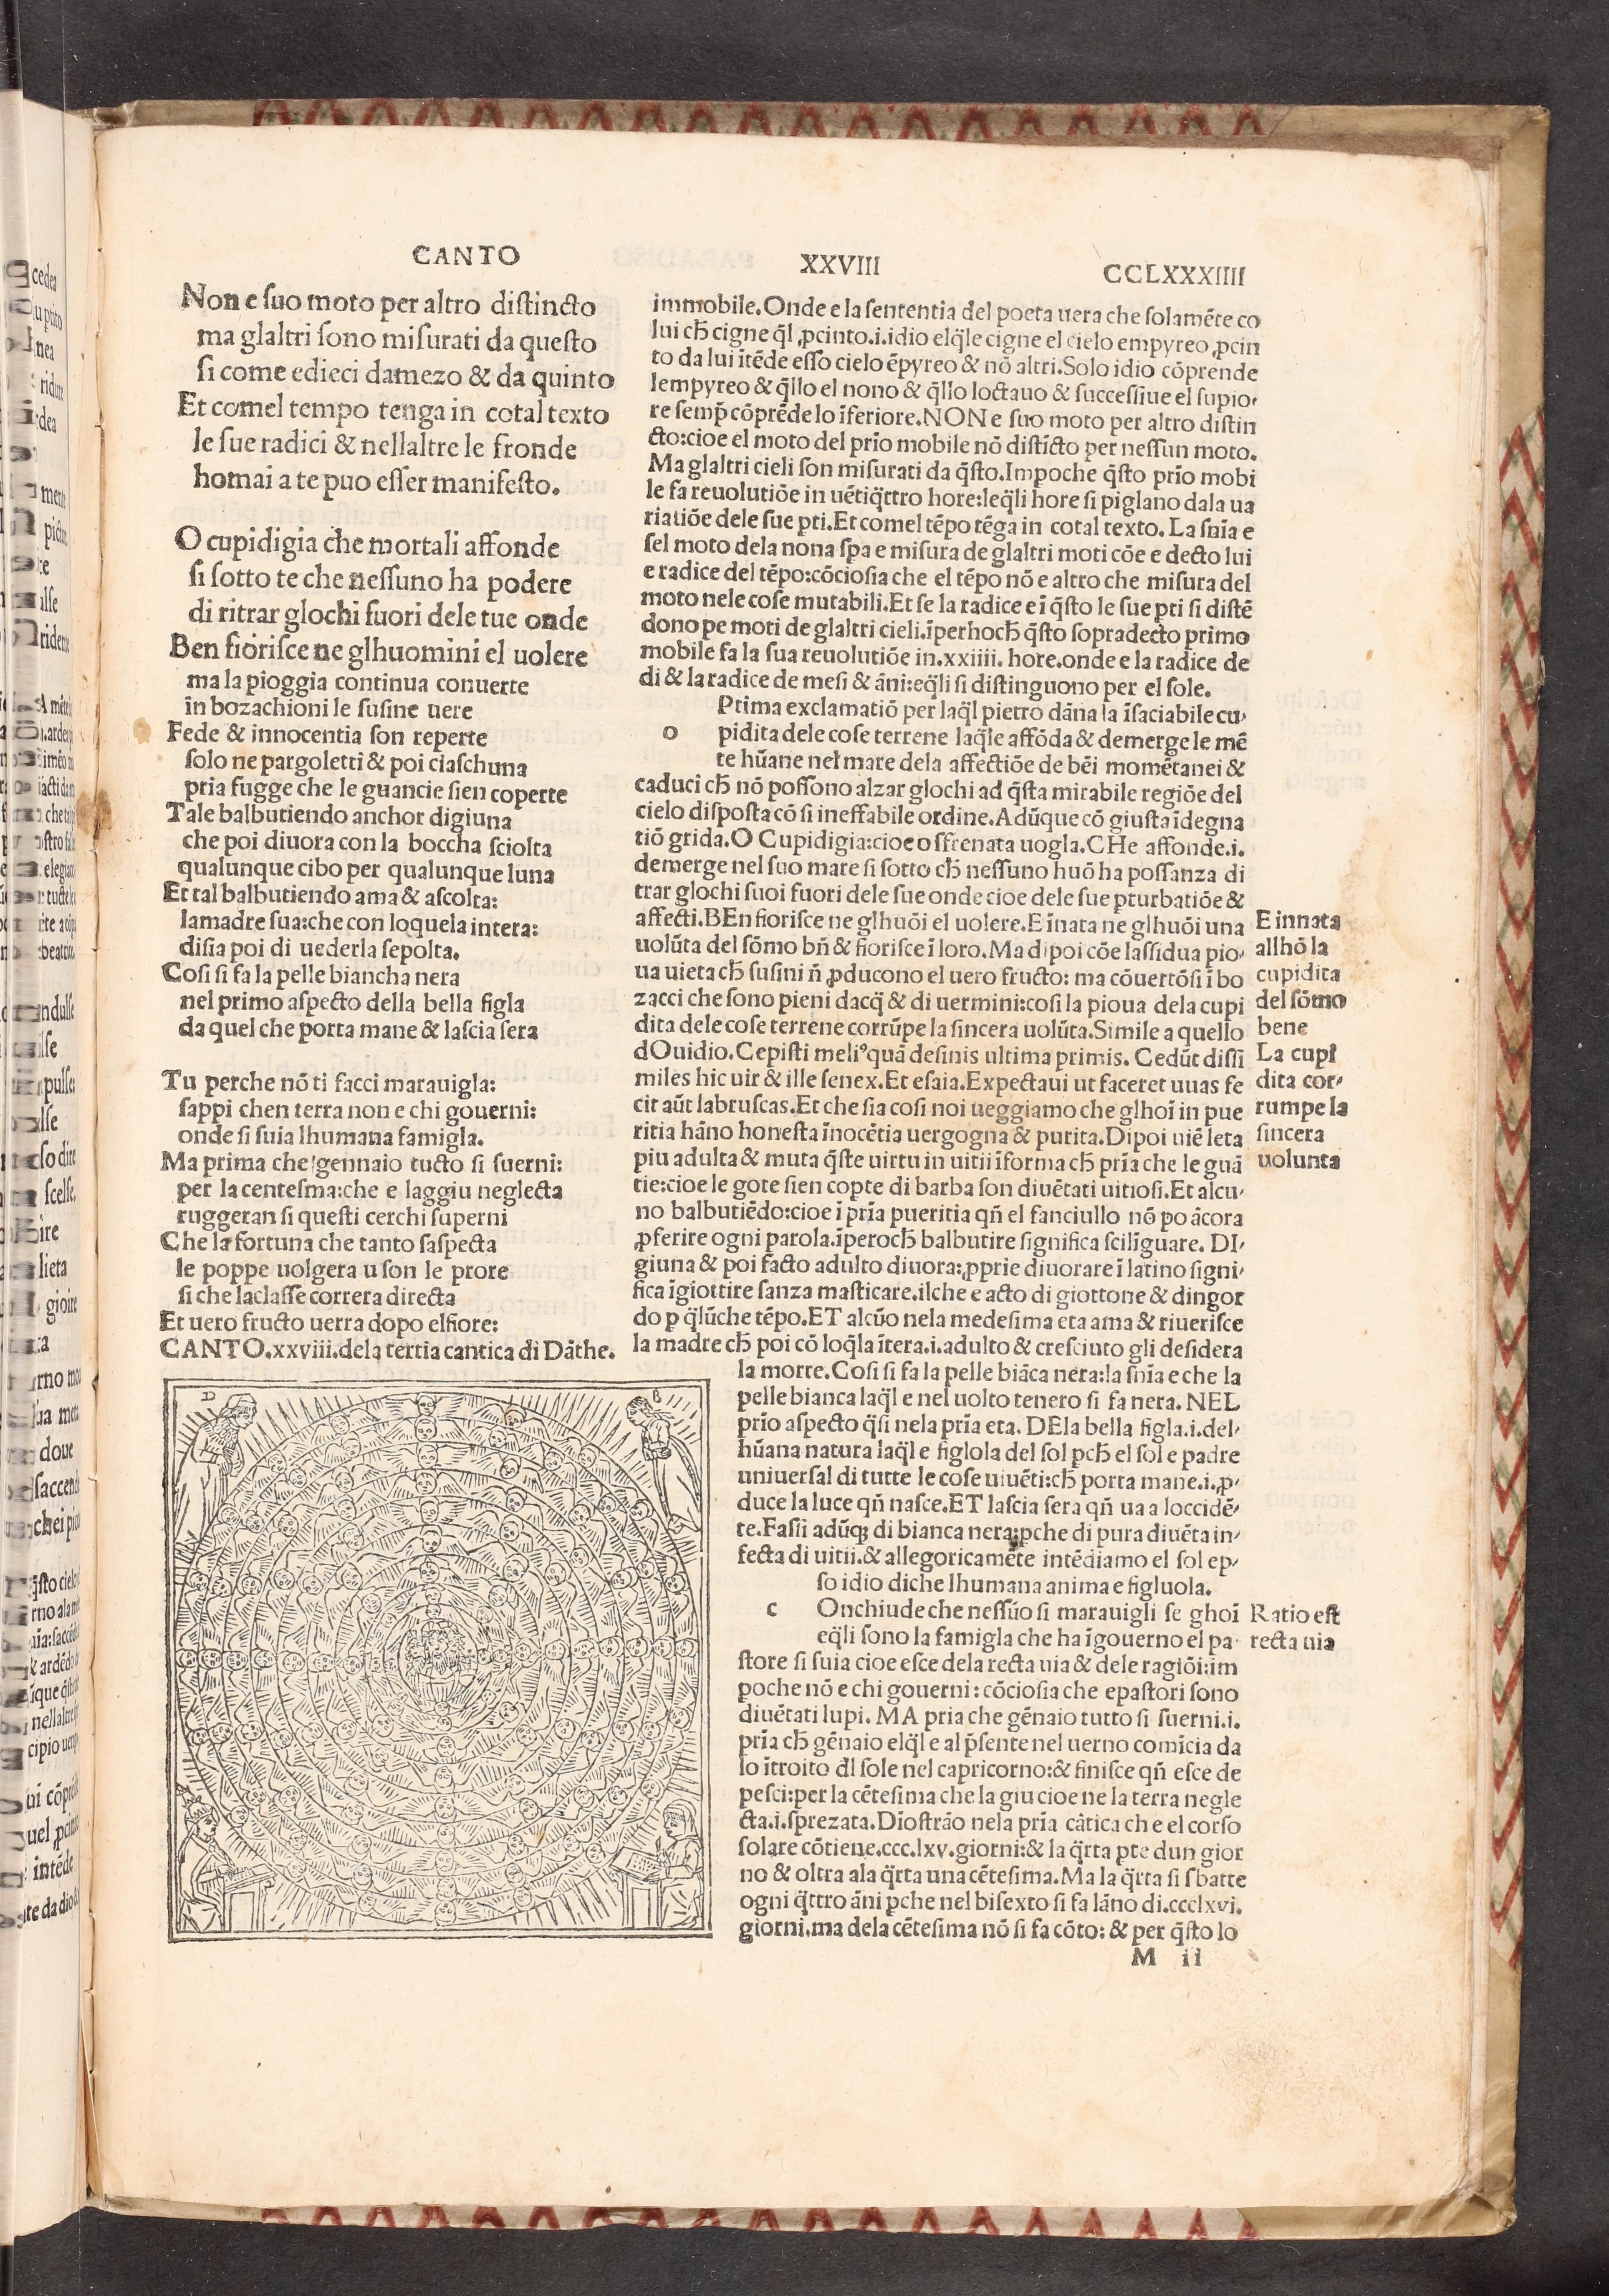 CANTO
XXVIII
CCLXXXIIII
Non e ſuo moto per altro diſtincto
ma glaltri ſono miſurati da queſto
ſi come edieci damezo & da quinto
Et comel tempo tenga in cotal texto
le ſue radici & nellaltre le fronde
homai a te puo eſſer manifeſto.
O cupidigia che mortali affonde
ſi ſotto te che neſſuno ha podere
di ritrar glochi fuori dele tue onde
Ben fioriſce ne glhuomini el uolere
ma la pioggia continua conuerte
in bozachioni le ſuſine uere
Fede & innocentia ſon reperte
ſolo ne pargoletti & poi ciaſchuna
pria fugge che le guancie ſien coperte
Tale balbutiendo anchor digiuna
che poi diuora con la boccha ſciolta
qualunque cibo per qualunque luna
Et tal balbutiendo ama & aſcolta:
lamadre ſua:che con loquela intera:
diſia poi di uederla ſepolta.
Coſi ſi fa la pelle biancha nera
nel primo aſpecto della bella figla
da quel che porta mane & laſcia ſera
Tu perche nō ti facci marauigla:
ſappi chen terra non e chi gouerni:
onde ſi ſuia lhumana famigla.
Ma prima che gennaio tucto ſi ſuerni:
per la centeſma:che e laggiu neglecta
ruggeran ſi queſti cerchi ſuperni
Che la fortuna che tanto ſaſpecta
le poppe uolgera u ſon le prore
ſi che laclaſſe correra directa
Et uero fructo uerra dopo elfiore:
CANTO.xxviii.dela tertia cantica di Dāthe.
D
B
immobile.Onde e la ſententia del poeta uera che ſolamēte co
lui cħ cigne q̄l ꝓcinto.i.idio elq̄le cigne el cielo empyreo ꝓcin
to da lui ītēde eſſo cielo ēpyreo & nō altri.Solo idio cōprende
lempyreo & q̄llo el nono & q̄llo loctauo & ſucceſſiue el ſupio-
re ſemp̄ cōprēde lo īferiore.NON e ſuo moto per altro diſtin
cto:cioe el moto del prīo mobile nō diſtīcto per neſſun moto.
Ma glaltri cieli ſon miſurati da q̄ſto.Impoche q̄ſto prīo mobi
le fa reuolutiōe in uētiq̄ttro hore:leq̄li hore ſi piglano dala ua
riatiōe dele ſue pti.Et comel tēpo tēga in cotal texto. La ſnīa e
ſel moto dela nona ſpa e miſura de glaltri moti cōe e decto lui
e radice del tēpo:cōcioſia che el tēpo nō e altro che miſura del
moto nele coſe mutabili.Et ſe la radice e ī q̄ſto le ſue pti ſi diſtē
dono pe moti de glaltri cieli.īperhocħ q̄ſto ſopradecto primo
mobile fa la ſua reuolutiōe in.xxiiii. hore.onde e la radice de
di & la radice de meſi & āni:eq̄li ſi diſtinguono per el ſole.
Prima exclamatiō per laq̄l pietro dāna la īſaciabile cu-
o
pidita dele coſe terrene laq̄le affōda & demerge le mē
te hūane nel mare dela affectiōe de bēi momētanei &
caduci cħ nō poſſono alzar glochi ad q̄ſta mirabile regiōe del
cielo diſpoſta cō ſi ineffabile ordine.Adūque cō giuſta īdegna
tiō grida.O Cupidigia:cioe o sfrenata uogla.CHe affonde.i.
demerge nel ſuo mare ſi ſotto cħ neſſuno huō ha poſſanza di
trar glochi ſuoi fuori dele ſue onde cioe dele ſue pturbatiōe &
affecti.BEn fioriſce ne glhuōi el uolere.E īnata ne glhuōi una
uolūta del ſōmo bn̄ & fioriſce ī loro. Ma dipoi cōe laſſidua pio-
ua uieta cħ ſuſini n̄ ꝓducono el uero fructo: ma cōuertōſi ī bo
zacci che ſono pieni dacq̄ & di uermini:coſi la pioua dela cupi
dita dele coſe terrene corrūpe la ſincera uolūta.Simile a quello
dOuidio.Cepiſti meliꝰ quā deſinis ultima primis. Cedūt diſſi
miles hic uir & ille ſenex.Et eſaia.Expectaui ut faceret uuas fe
cit aūt labruſcas.Et che ſia coſi noi ueggiamo che glhoī in pue
ritia hāno honeſta īnocētia uergogna & purita.Dipoi uiē leta
piu adulta & muta q̄ſte uirtu in uitii īforma cħ prīa che le guā
tie:cioe le gote ſien copte di barba ſon diuētati uitioſi.Et alcu-
no balbutiēdo:cioe ī prīa pueritia qn̄ el fanciullo nō po ācora
ꝓferire ogni parola.īperocħ balbutire ſignifica ſcilīguare. DI-
giuna & poi facto adulto diuora:ꝓprie diuorare ī latino ſigni-
fica īgiottire ſanza maſticare.ilche e acto di giottone & dingor
do p q̄lūche tēpo.ET alcūo nela medeſima eta ama & riueriſce
la madre cħ poi cō loq̄la ītera.i.adulto & creſciuto gli deſidera
la morte.Coſi ſi fa la pelle biāca nera:la ſnīa e che la
pelle bianca laq̄l e nel uolto tenero ſi fa nera. NEL
prīo aſpecto q̄ſi nela prīa eta. DEla bella figla.i.del-
hūana natura laq̄l e figlola del ſol pcħ el ſol e padre
uniuerſal di tutte le coſe uiuēti:cħ porta mane.i.ꝓ-
duce la luce qn̄ naſce.ET laſcia ſera qn̄ ua a loccidē-
te.Faſii adūqꝫ di bianca nera:pche di pura diuēta in-
fecta di uitii.& allegoricamēte intēdiamo el ſol ep-
ſo idio diche lhumana anima e figluola.
c
Onchiude che neſſūo ſi marauigli ſe ghoī
eq̄li ſono la famigla che ha īgouerno el pa-
ſtore ſi ſuia cioe eſce dela recta uia & dele ragiōi:im
poche nō e chi gouerni: cōcioſia che epaſtori ſono
diuētati lupi. MA pria che gēnaio tutto ſi ſuerni.i.
prīa cħ gēnaio elq̄l e al p̄ſente nel uerno comīcia da
lo ītroito dl̄ ſole nel capricorno:& finiſce qn̄ eſce de
peſci:per la cēteſima che la giu cioe ne la terra negle
cta.i.ſprezata.Dīoſtrāo nela prīa cātica che el corſo
ſolare cōtiene.ccc.lxv.giorni:& la q̄rta pte dun gior
no & oltra ala q̄rta una cēteſima.Ma la q̄rta ſi ſbatte
ogni q̄ttro āni pche nel biſexto ſi fa lāno di.ccclxvi.
giorni.ma dela cēteſima nō ſi fa cōto: & per q̄ſto lo
M ii
E innata
allhō la
cupidita
del ſōmo
bene
La cupi
dita cor-
rumpe la
ſincera
uolunta
Ratio eſt
recta uia